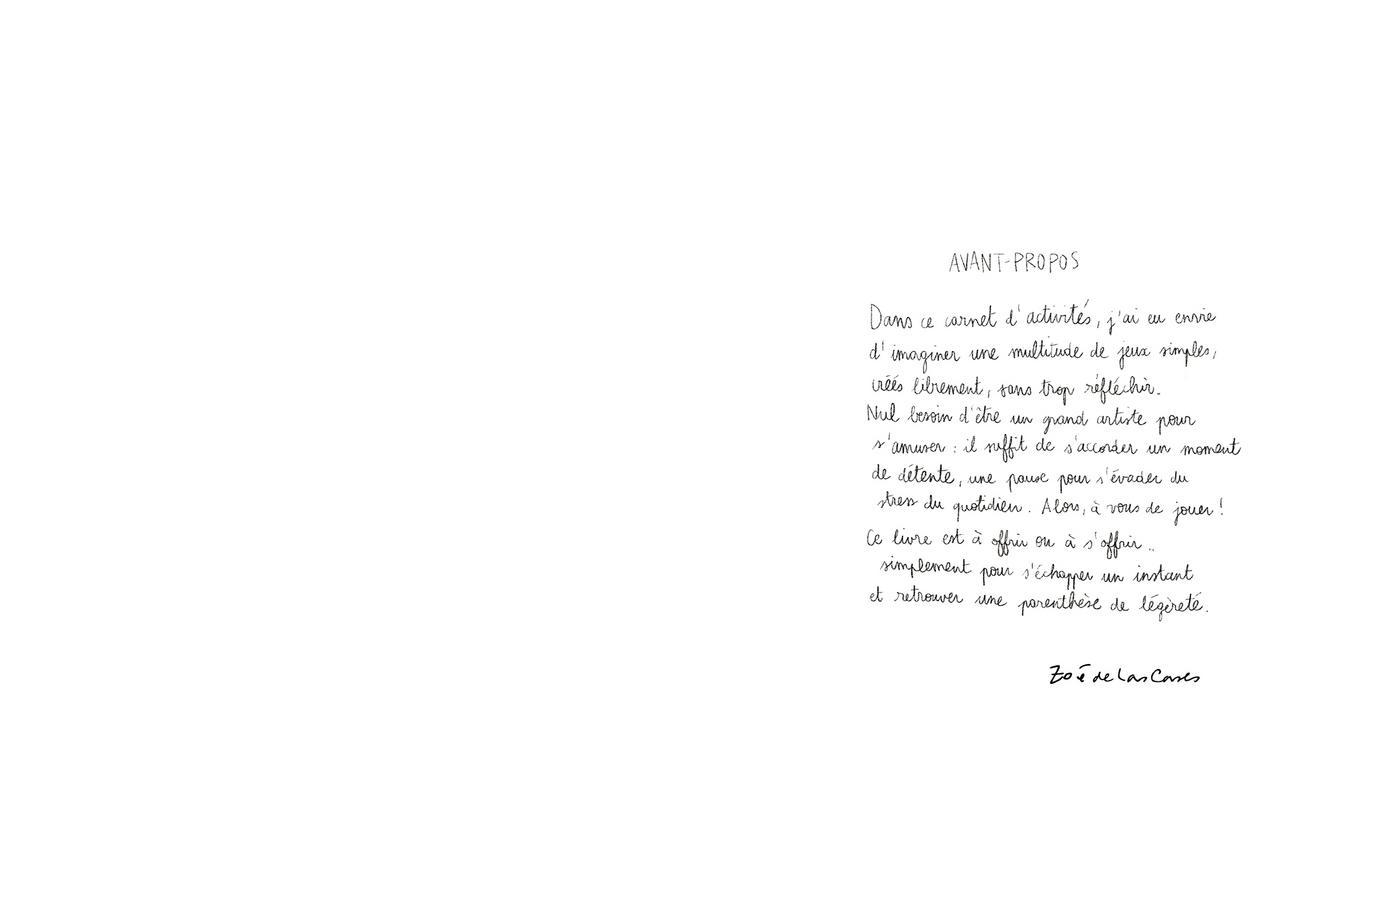 AVANT-PROPOS
Dans ce carnet d'activités, j'ai eu envie
d'imaginer une multitude de jeux simples,
créés librement, sans trop réfléchir.
Nul besoin d'être un grand artiste pour
s'amuser : il suffit de s'accorder un moment
de détente, une pause pour s'évader du
stress du quotidien. Alors, à vous de jouer !
Ce livre est à offrir ou à s'offrir..
simplement pour s'échapper un instant
et retrouver une parenthèse de légèreté.
Zoé de Las Cases